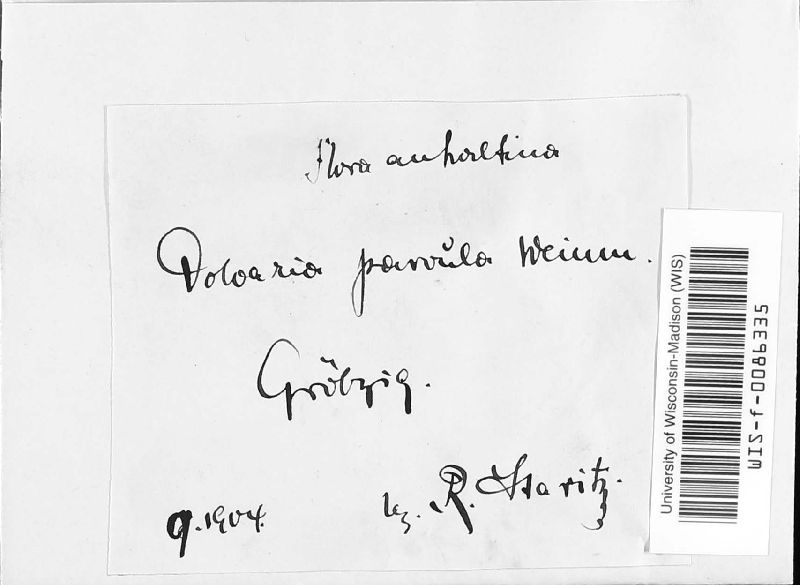 Flora anhaltina
Volvaria parvula Weinm.
Gröbzig.
9.1904.
leg. R. Staritz.
University of Wisconsin-Madison (WIS)
WIS-f-0086335